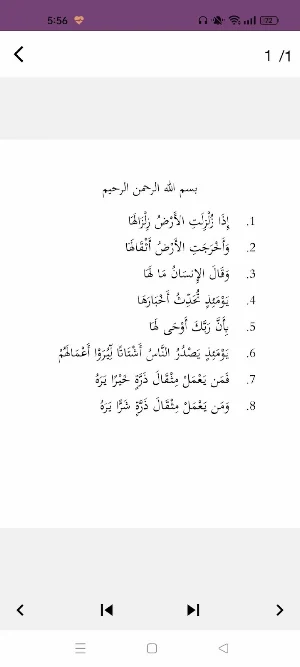 5:56
72
1 /1
بسم الله الرحمن الرحيم
1. إِذَا زُلْزِلَتِ الأَرْضُ زِلْزَالَهَا
2. وَأَخْرَجَتِ الأَرْضُ أَثْقَالَهَا
3. وَقَالَ الإِنسَانُ مَا لَهَا
4. يَوْمَئِذٍ تُحَدِّثُ أَخْبَارَهَا
5. بِأَنَّ رَبَّكَ أَوْحَى لَهَا
6. يَوْمَئِذٍ يَصْدُرُ النَّاسُ أَشْتَاتًا لِّيُرَوْا أَعْمَالَهُمْ
7. فَمَن يَعْمَلْ مِثْقَالَ ذَرَّةٍ خَيْرًا يَرَهُ
8. وَمَن يَعْمَلْ مِثْقَالَ ذَرَّةٍ شَرًّا يَرَهُ